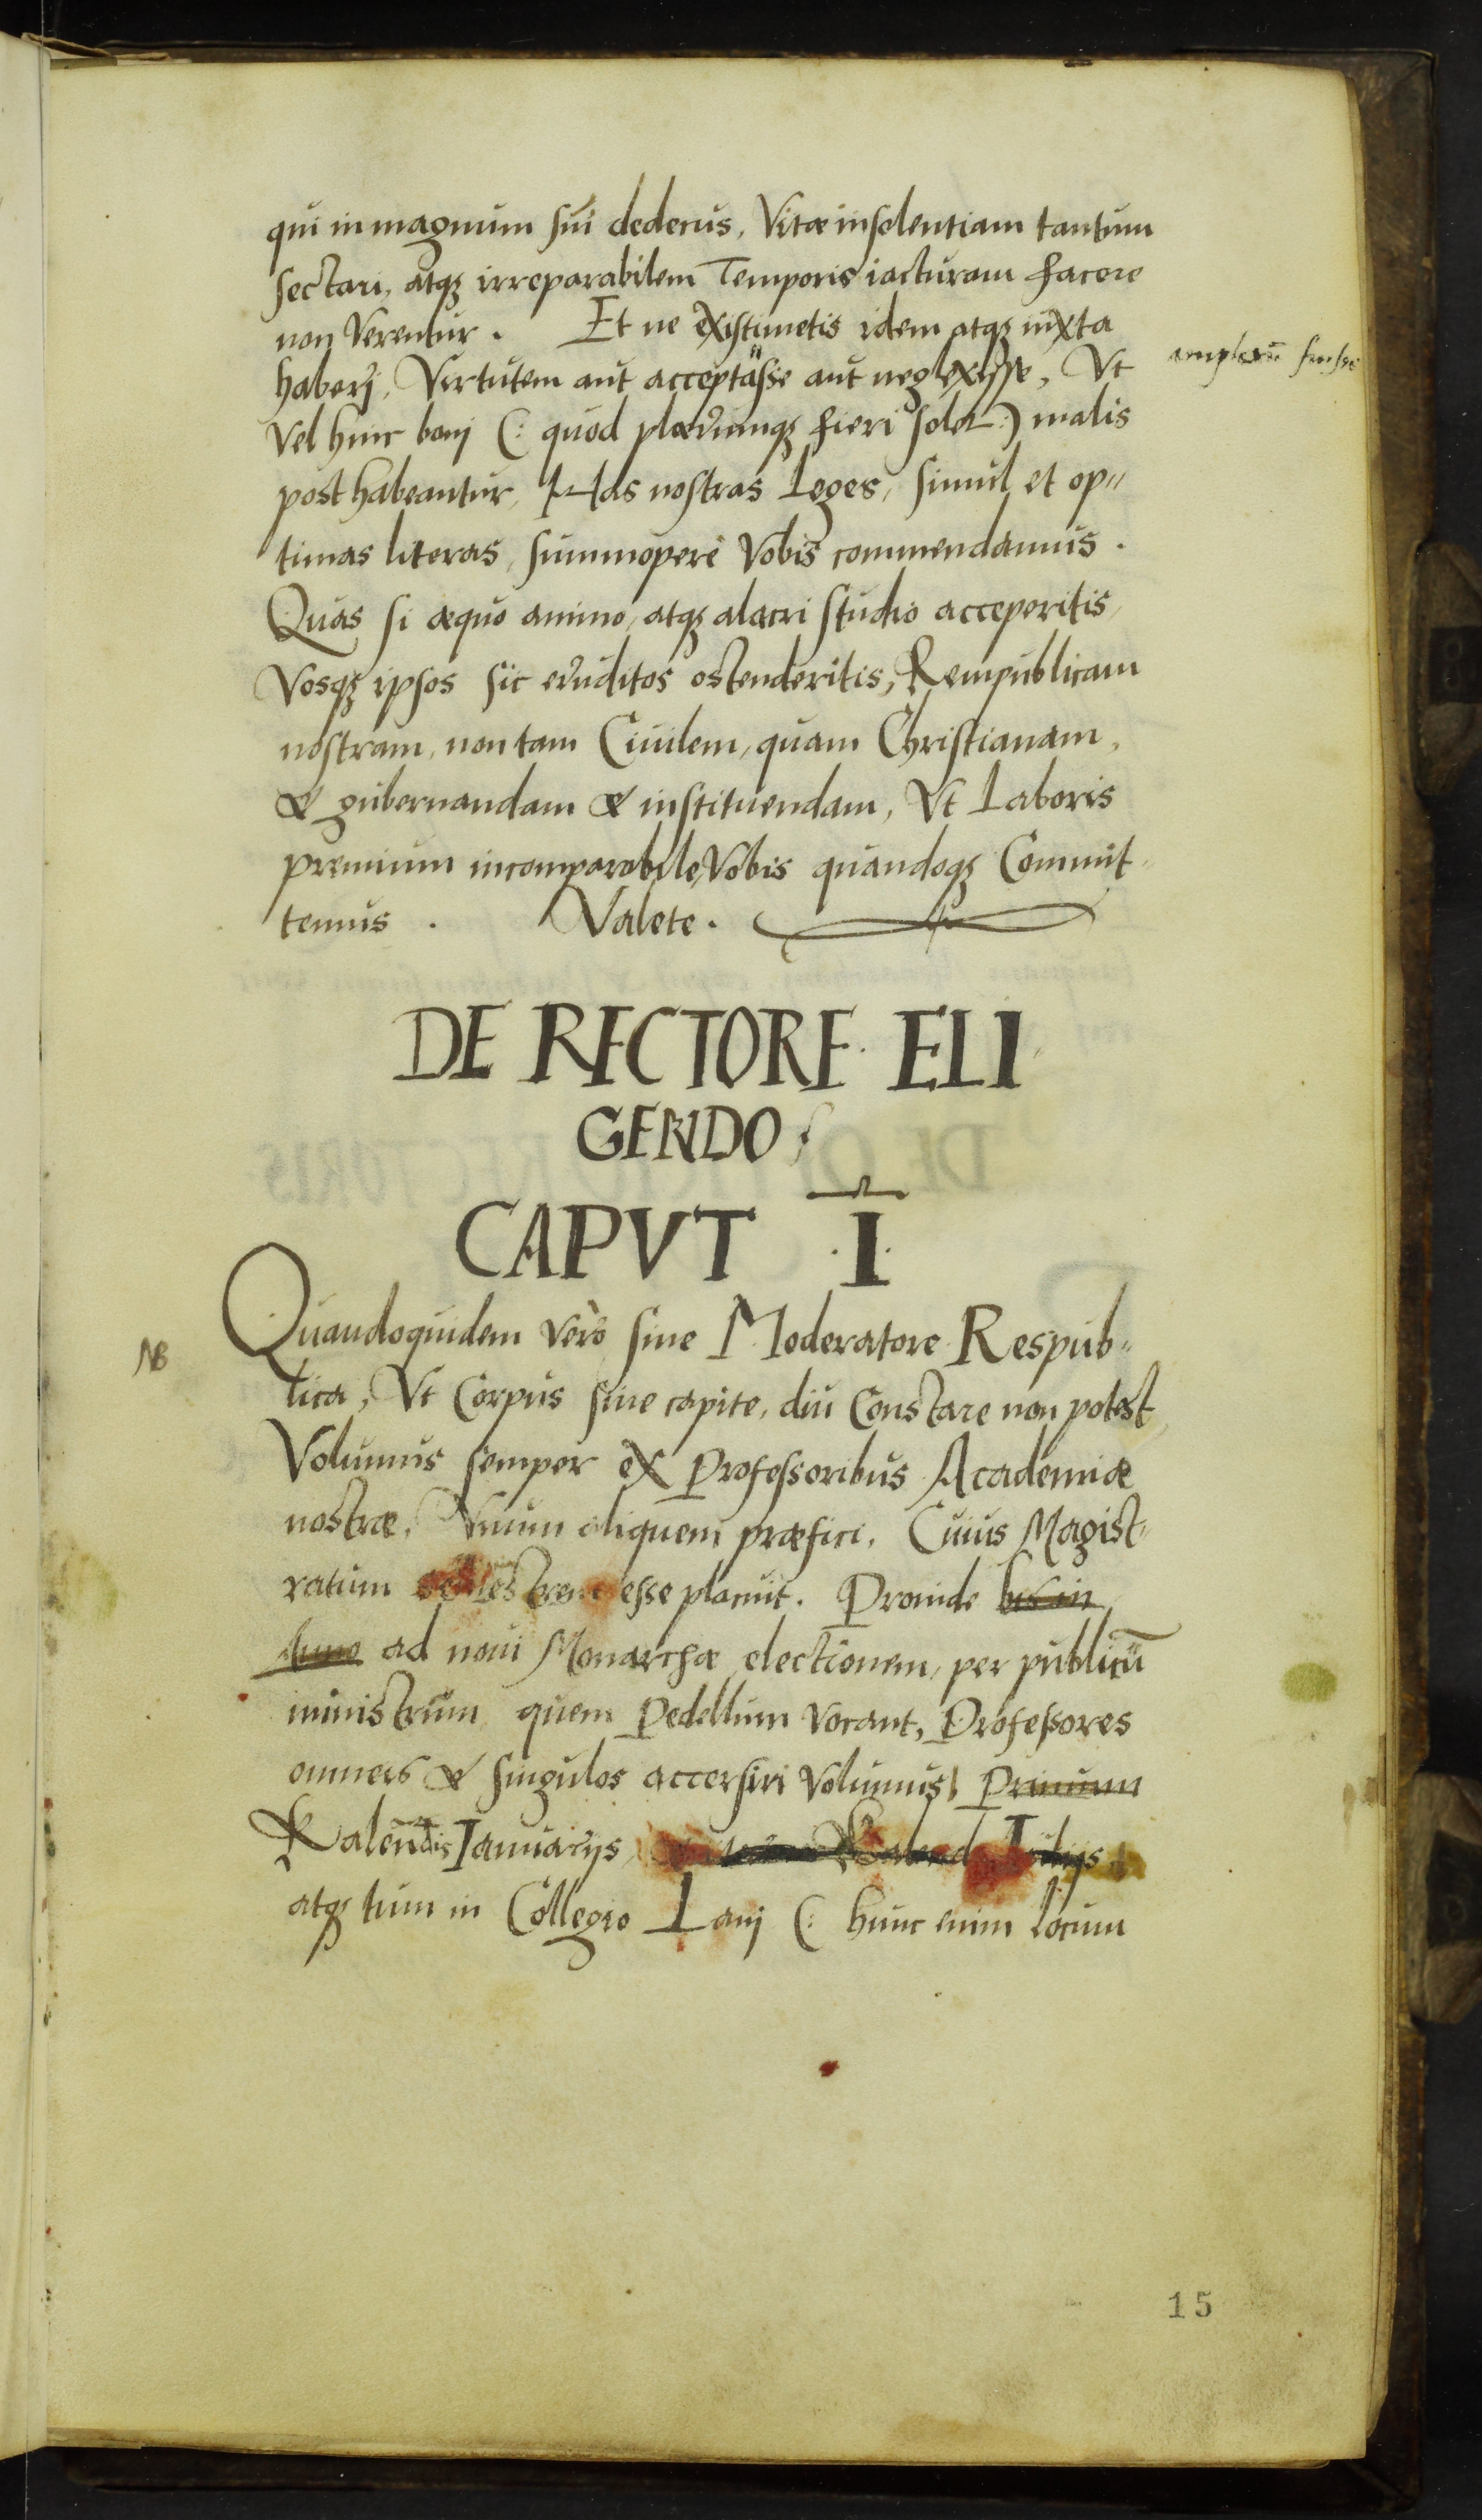 qui in magnum sui dedecus, Vitæ insolentiam tantum
sectari, atqȝ irreparabilem Temporis iacturam facere
non Verentur. Et ne existimetis idem atqȝ iuxta
haberj, Virtutem aut acceptasse aut neglexisse, Vt
amplexũ fuisse
Vel hinc bonj (: quod plærumqȝ fieri solet :) malis
posthabeantur, Has nostras Leges, simul et op„
timas literas, summopere Vobis commendamus.
Quas si æquo animo, atqȝ alacri studio acceperitis,
Vosqȝ ipsos sic eruditos ostenderitis, Rempublicam
nostram, non tam Ciuilem, quam Christianam,
& gubernandam & instituendam, Vt Laboris
premium incomparabile, Vobis quandoqȝ Commit„
temus. Valete.
DE RECTORE ELI
GENDO
CAPVT .I.
NB
Quandoquidem verò sine Moderatore Respub„
lica, Vt Corpus sine capite, diu Constare non potest
Volumus semper ex Professoribus Academiæ
nostræ, Vnum aliquem præfici, Cuius Magist„
ratum semestrem esse placuit. Proinde bis in
Anno ad noui Monarchæ electionem, per publicũ
ministrum quem Pedellum Vocant, Professores
omneis & singulos accersiri Volumus, Primum
Kalendis Ianuarijs, Kalend. Iulijs
atqȝ tum in Collegio Lanj (: hunc enim locum
15